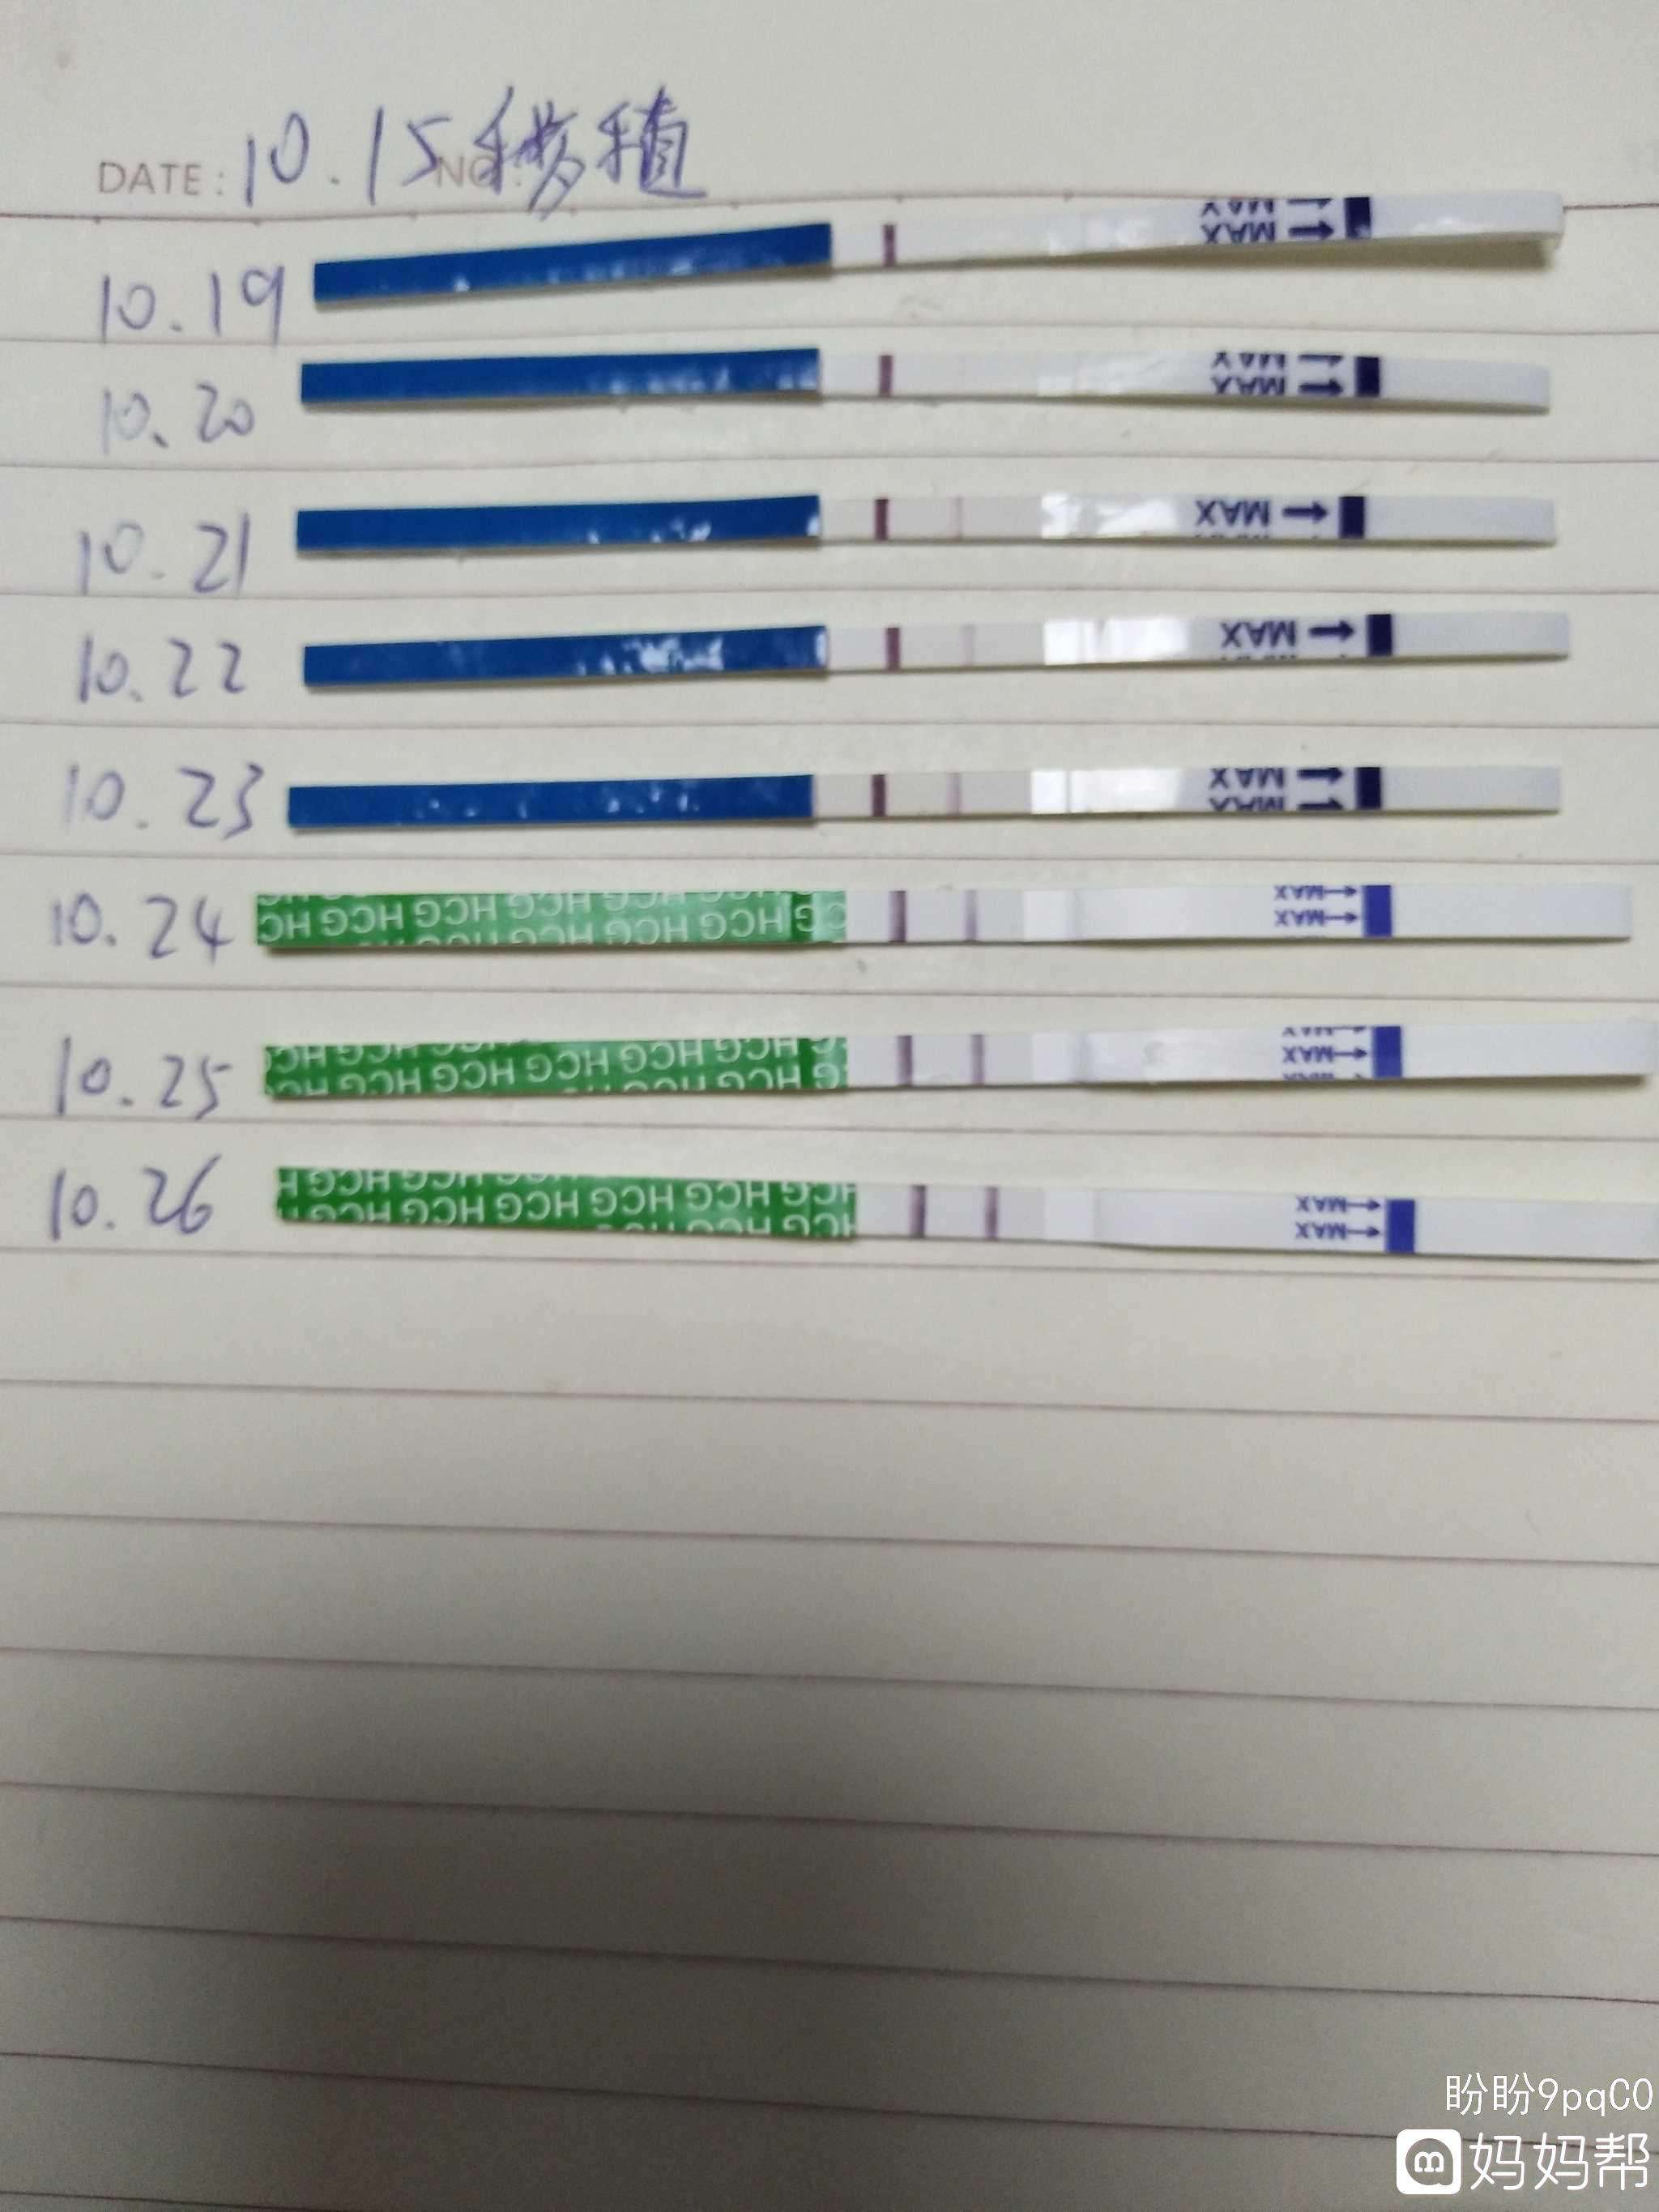 DATE: 10.15移植
NO
MAX
MAX
10.19
MAX
MAX
10.20
MAX
10.21
MAX
10.22
MAX
MAX
10.23
HCG HCG HCG HCG HCG HCG
MAX
MAX
10.24
HCG HCG HCG HCG HCG HCG
MAX
MAX
10.25
HCG HCG HCG HCG HCG HCG
MAX
MAX
10.26
盼盼9pqC0
m妈妈帮